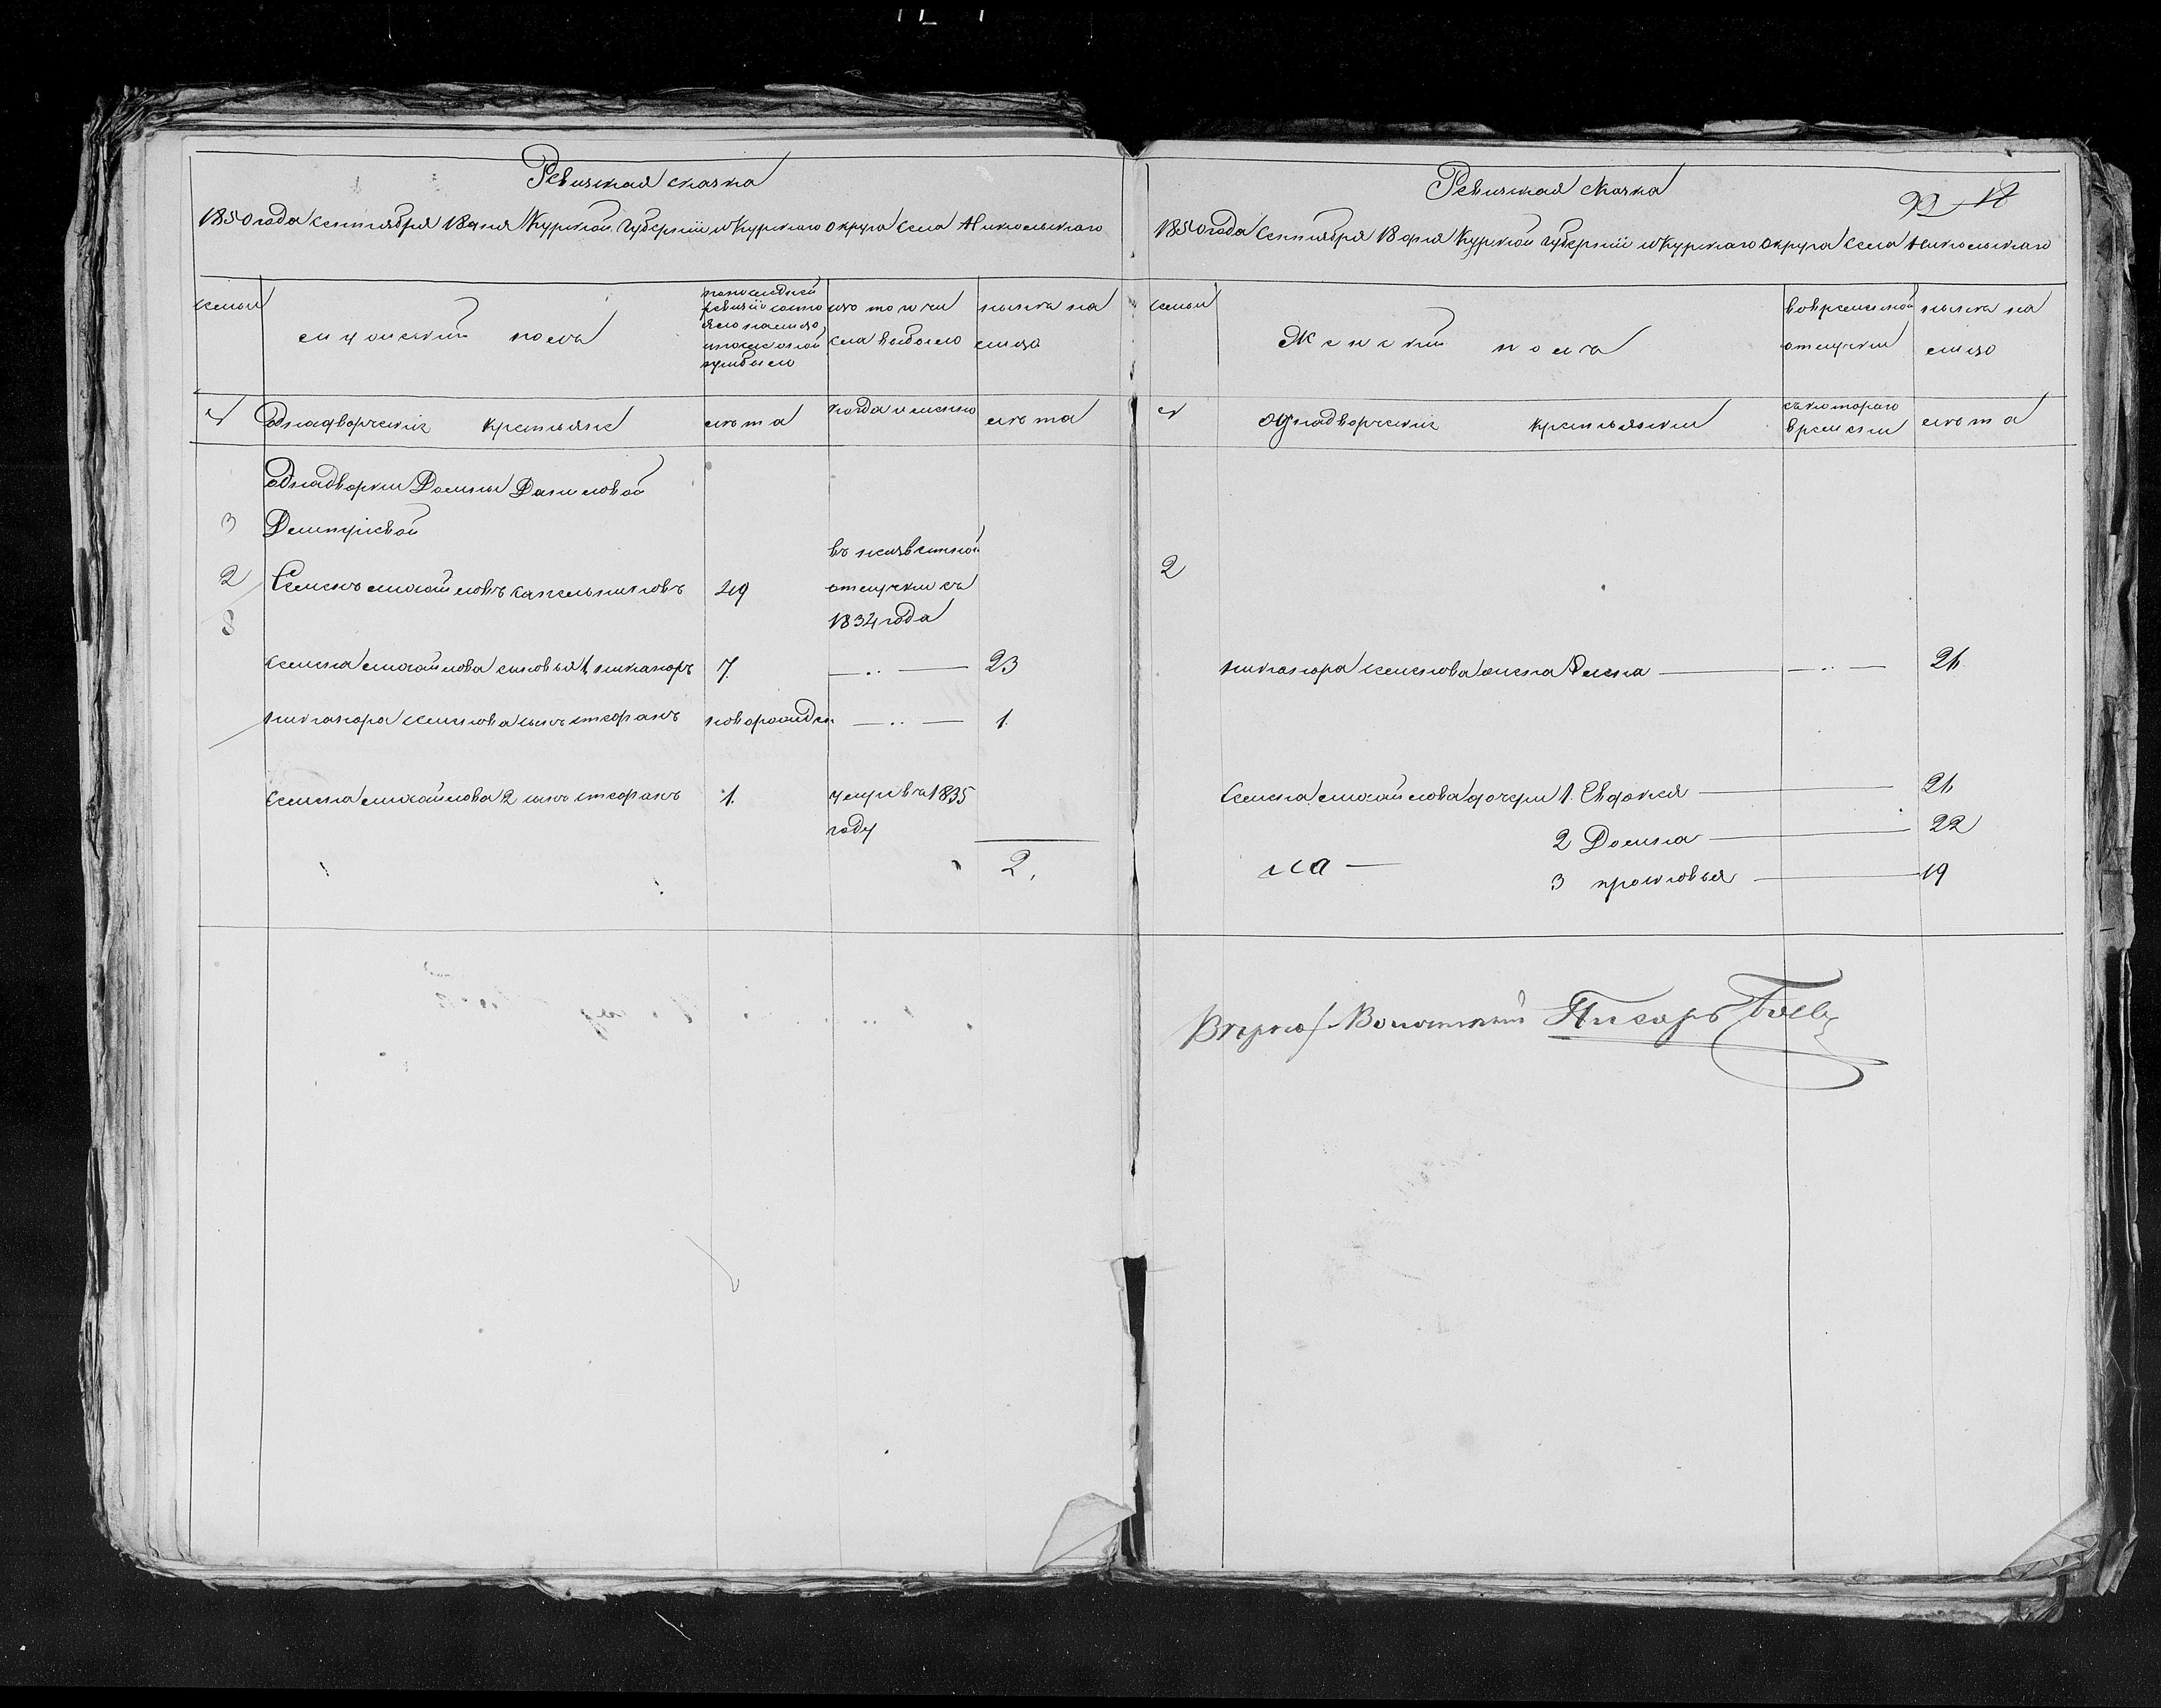 Ревизская сказка
1850 года сентября 18 дня Курской губернии и Курского округа села Никольского
семьи
мужской полъ
по последней ревизии состояло на лицо и после оной прибыло
изъ того числа выбыло
ныне на лицо
Однодворческие крестьяне
лета
когда именно
лета
Однодворки Домны Даниловой
3
2
Семенъ Михайловъ
49
въ неизвестной
отлучки съ
1834 года
8
Семена Михайлова сыновья 1 Никаноръ
7
23
Никанора Семенова сынъ Стефанъ
новорожден
1
Семена Михайлова 2 сынъ Стефанъ
1.
умер въ 1835
году
2.
Ревизская сказка
1850 года сентября 18 дня Курской губернии и Курского округа села Никольского
семьи
Женский полъ
во временной отлучки
ныне на лицо
однодворческие крестьянки
съ которого времени
лета
2
Никанора Семенова жена
21
Семена Михайлова дочери 1. Евдокея
21
2 Домна
22
3 прасковья
19
Верно: Волостный Писарь